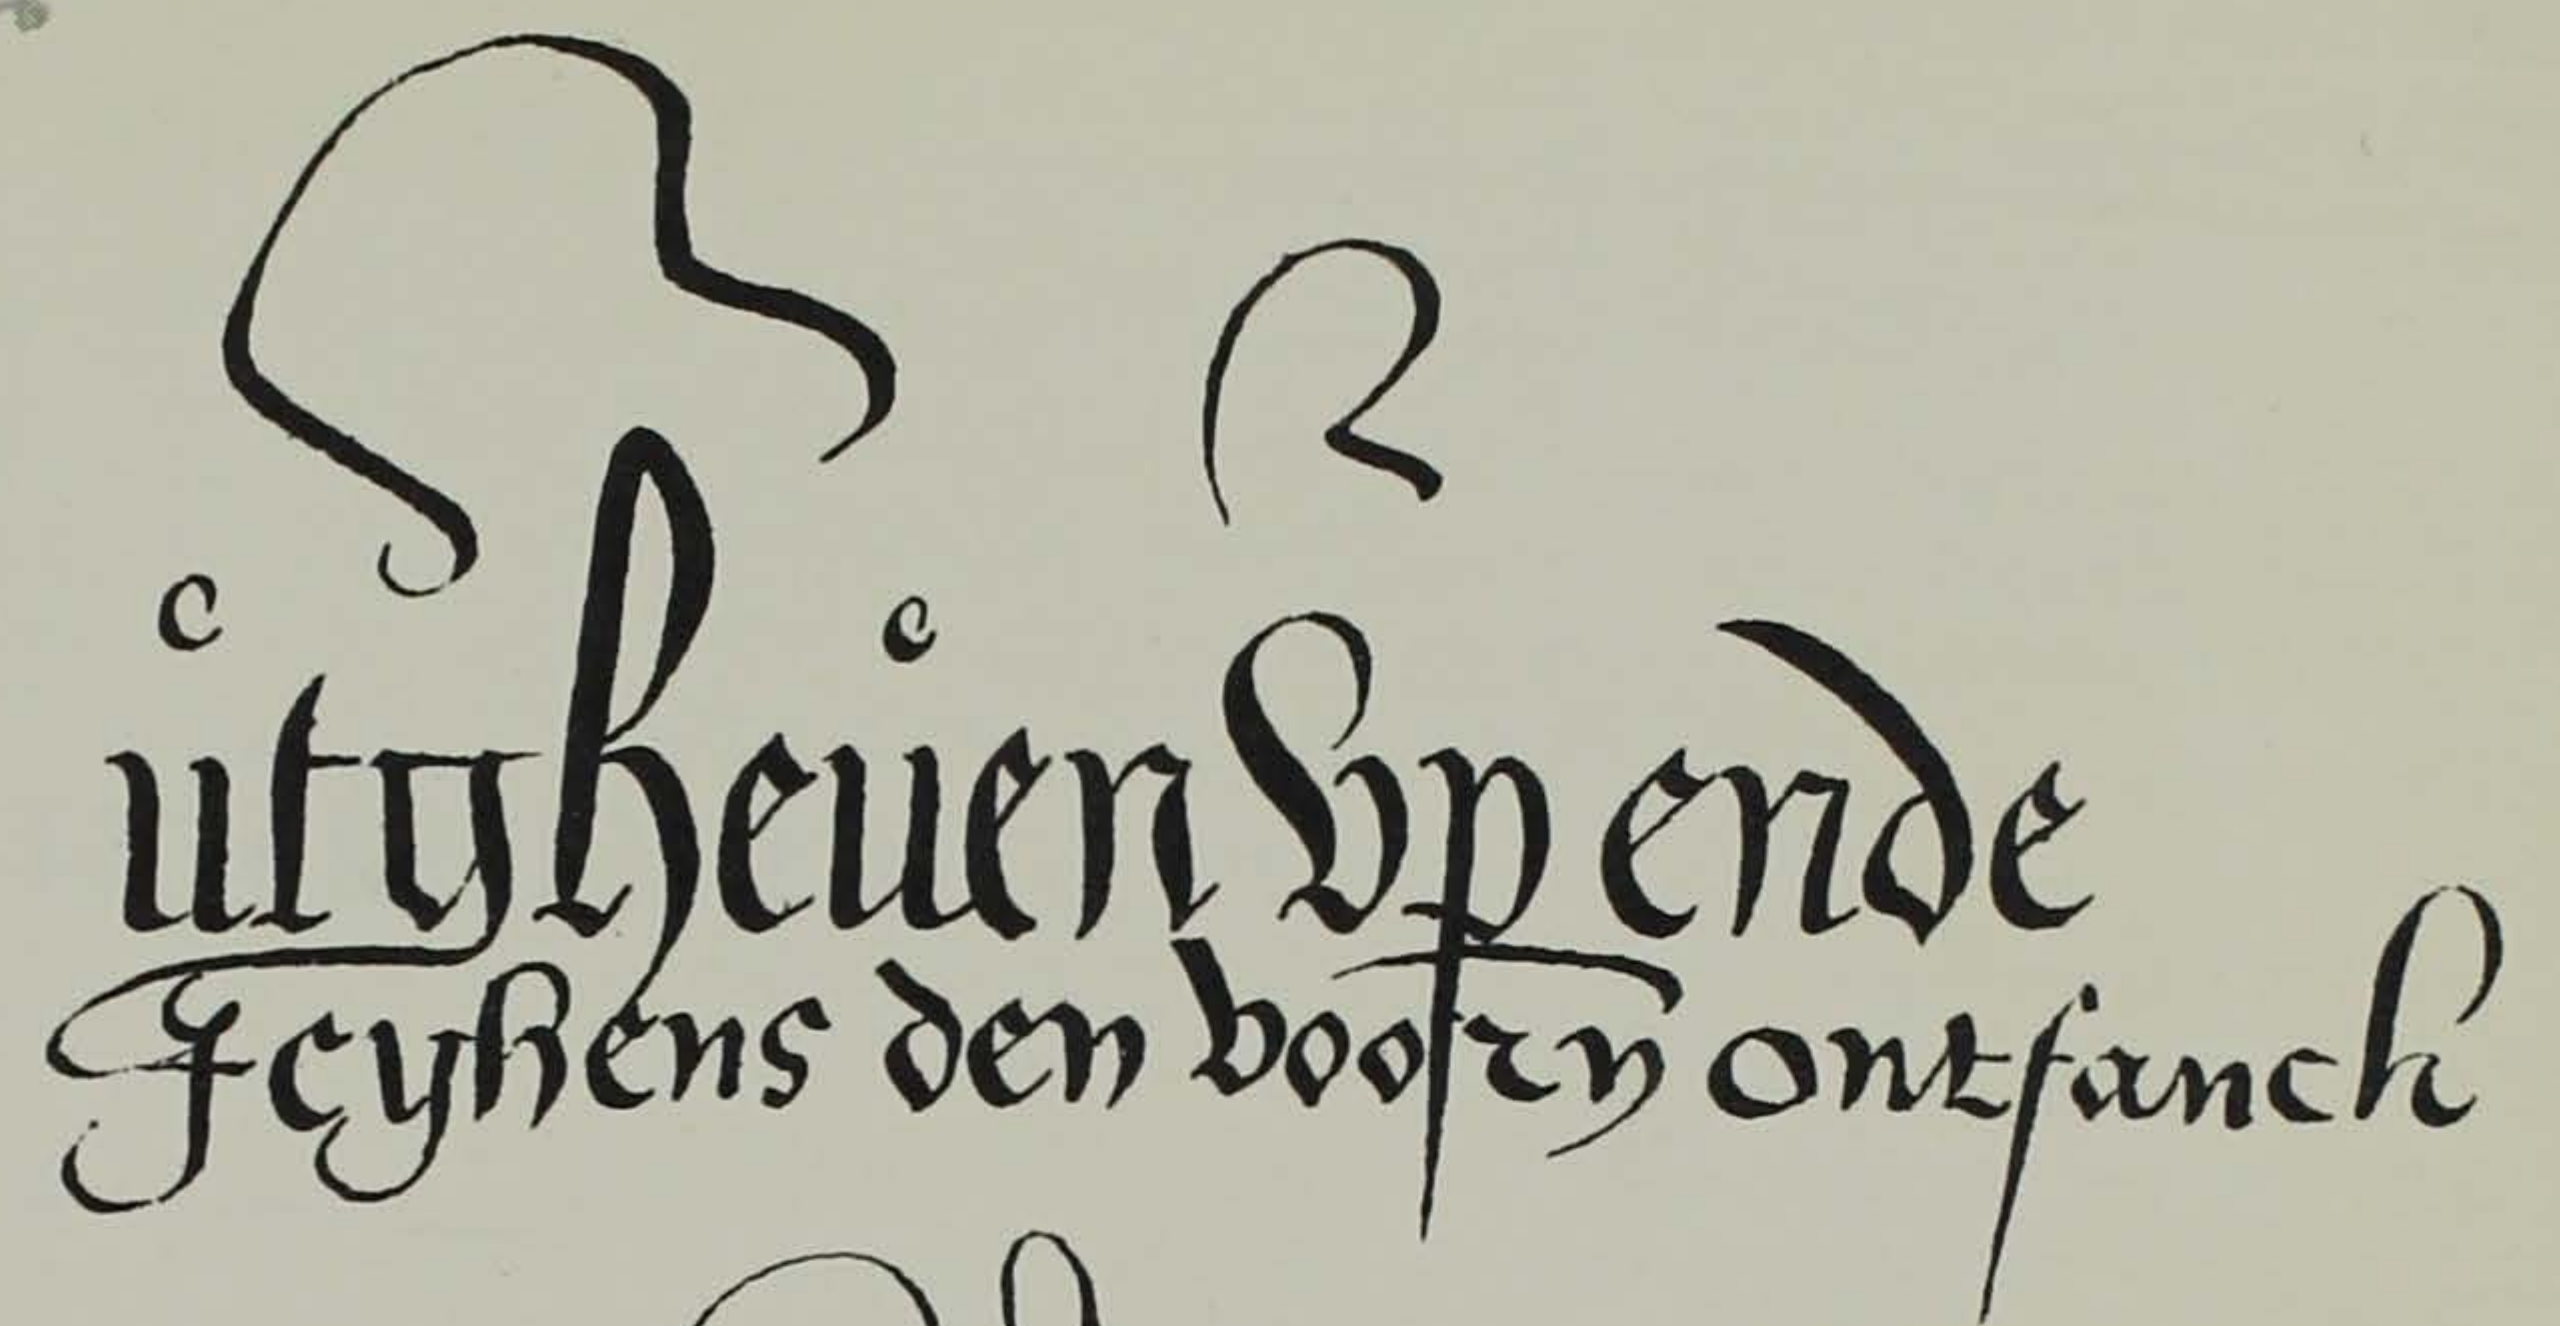 utgheuen vp ende
Jeghens den voorn̄ ontfanck